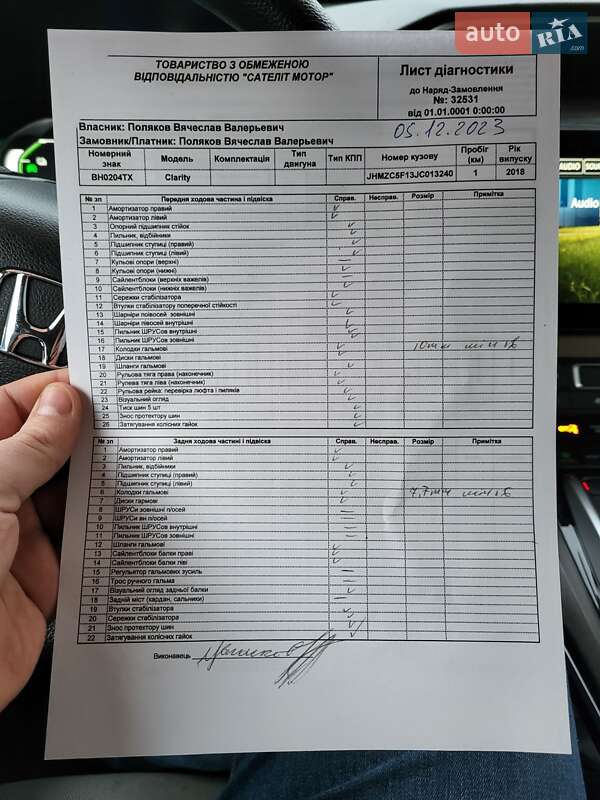 auto RIA .com
ТОВАРИСТВО З ОБМЕЖЕНОЮ
ВІДПОВІДАЛЬНІСТЮ "САТЕЛІТ МОТОР"
Лист діагностики
до Наряд-Замовлення
№: 32531
від 01.01.0001 0:00:00
05.12.2023
Власник: Поляков Вячеслав Валерьевич
Замовник/Платник: Поляков Вячеслав Валерьевич
Номерний знак Модель Комплектація Тип двигуна Тип КПП Номер кузову Пробіг (км) Рік випуску
BH0204TX Clarity JHMZC5F13JC013240 1 2018
№ зп Передня ходова частина і підвіска Справ. Несправ. Розмір Примітка
1 Амортизатор правий
2 Амортизатор лівий
3 Опорний підшипник стійок
4 Пильник, відбійники
5 Підшипник ступиці (правий)
6 Підшипник ступиці (лівий)
7 Кульові опори (верхні)
8 Кульові опори (нижні)
9 Сайлентблоки (верхніх важелів)
10 Сайлентблоки (нижніх важелів)
11 Сережки стабілізатора
12 Втулки стабілізатору поперечної стійкості
13 Шарніри поівосей зовнішні
14 Шарніри півосей внутрішні
15 Пильник ШРУСов внутрішні
16 Пильник ШРУСов зовнішні
17 Колодки гальмові 10мм
18 Диски гальмові
19 Шланги гальмові
20 Рульова тяга права (наконечник)
21 Рулева тяга ліва (наконечник)
22 Рульова рейка: перевірка люфта і пиляків
23 Візуальний огляд
24 Тиск шин 5 шт
25 Знос протектору шин
26 Затягування колісних гайок
№ зп Задня ходова частина і підвіска Справ. Несправ. Розмір Примітка
1 Амортизатор правий
2 Амортизатор лівий
3 Пильник, відбійники
4 Підшипник ступиці (правий)
5 Підшипник ступиці (лівий)
6 Колодки гальмові 7,7мм
7 Диски гармові
8 ШРУСи зовнішні п/осей
9 ШРУСи вн п/осей
10 Пильник ШРУСов внутрішні
11 Пильник ШРУСов зовнішні
12 Шланги гальмові
13 Сайлентблоки балки праві
14 Сайлентблоки балки ліві
15 Регулятор гальмових зусиль
16 Трос ручного гальма
17 Візуальний огляд задньої балки
18 Задній міст (кардан, сальники)
19 Втулки стабілізатора
20 Сережки стабілізатора
21 Знос протектору шин
22 Затягування колісних гайок
Виконавець
AUDIO
Audio